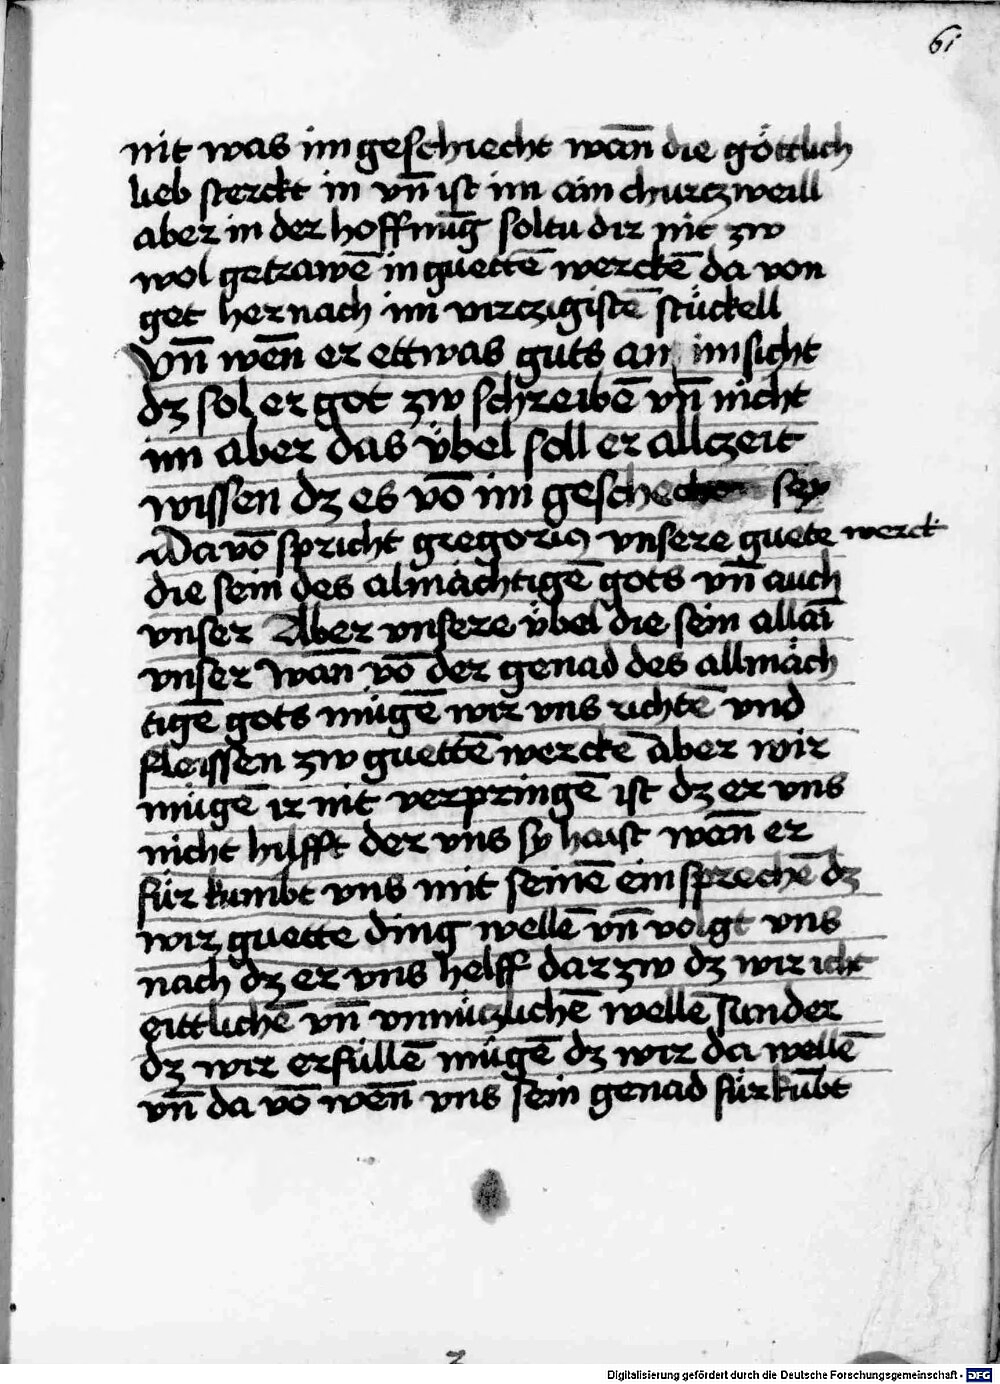 61
nit was im geschiecht wan̄ die göttlich
lieb sterckt in vn̄ ist im ain churtzweill
aber in der hoffnūg soltu dir nit zw
wol getrawē in guettē werckē da von
get her nach im virczigistē stückell
Vn̄ wen̄ er ettwas guts an im sicht
dz sol er got zw schreibē vn̄ nicht
im aber das übel soll er allczeit
wissen dz es vō im geschechen sey
Da vō spricht gregoriꝯ vnsere guete werck
die sein des almächtigē gots vn̄ auch
vnser Aber vnsere übel die sein allaī
vnser wan̄ vō der genad des allmäch
tigē gots mügē wir vns richtē vnd
fleissen zw guettē werckē Aber wir
mügē ir nit verpringē ist dz er vns
nicht hilfft der vns sy haist wan̄ er
für kumbt vns mit seinē ein sprechē dz
wir guette ding wellē vn̄ volgt vns
nach dz er vns helff dar zw dz wir icht
eittlichē vn̄ vnnüczlichē wellē sunder
dz wir erfüllē mügē dz wir da wellē
vn̄ da vō wen̄ vns sein genad für kūbt
Digitalisierung gefördert durch die Deutsche Forschungsgemeinschaft - DFG